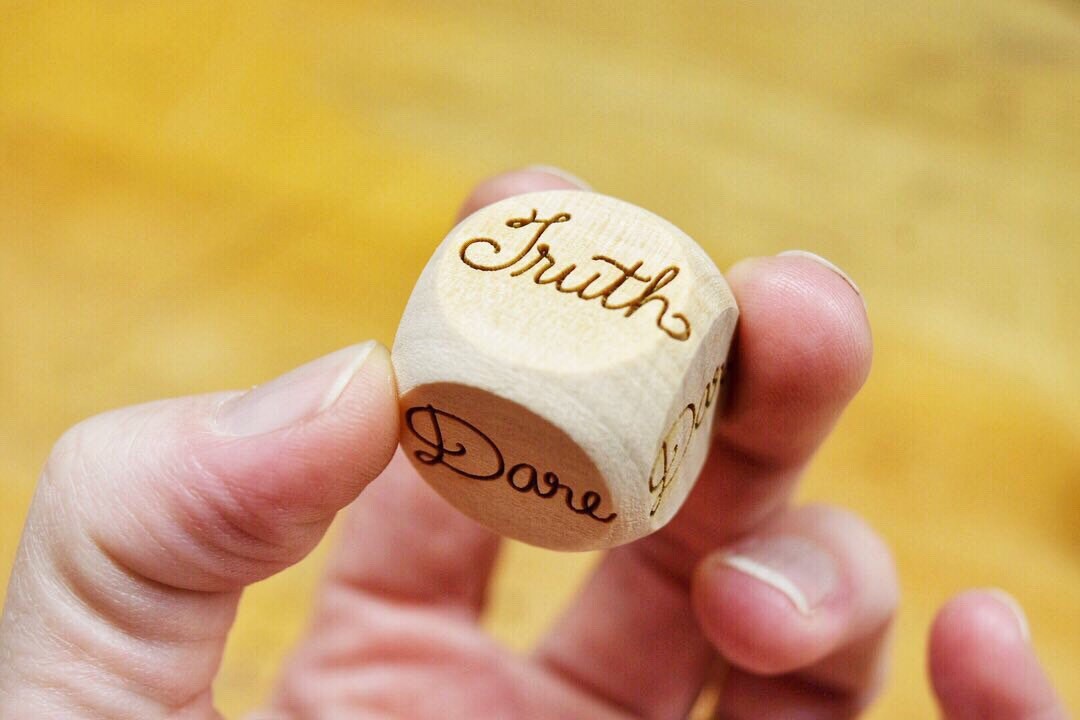 Truth
Dare